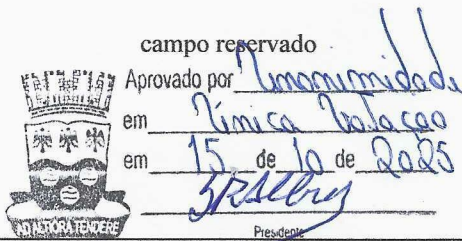 campo reservado
Aprovado por Unanimidade
em Única Votação
em 15 de 10 de 2025
Presidente
AD ALTIORA TENDERE